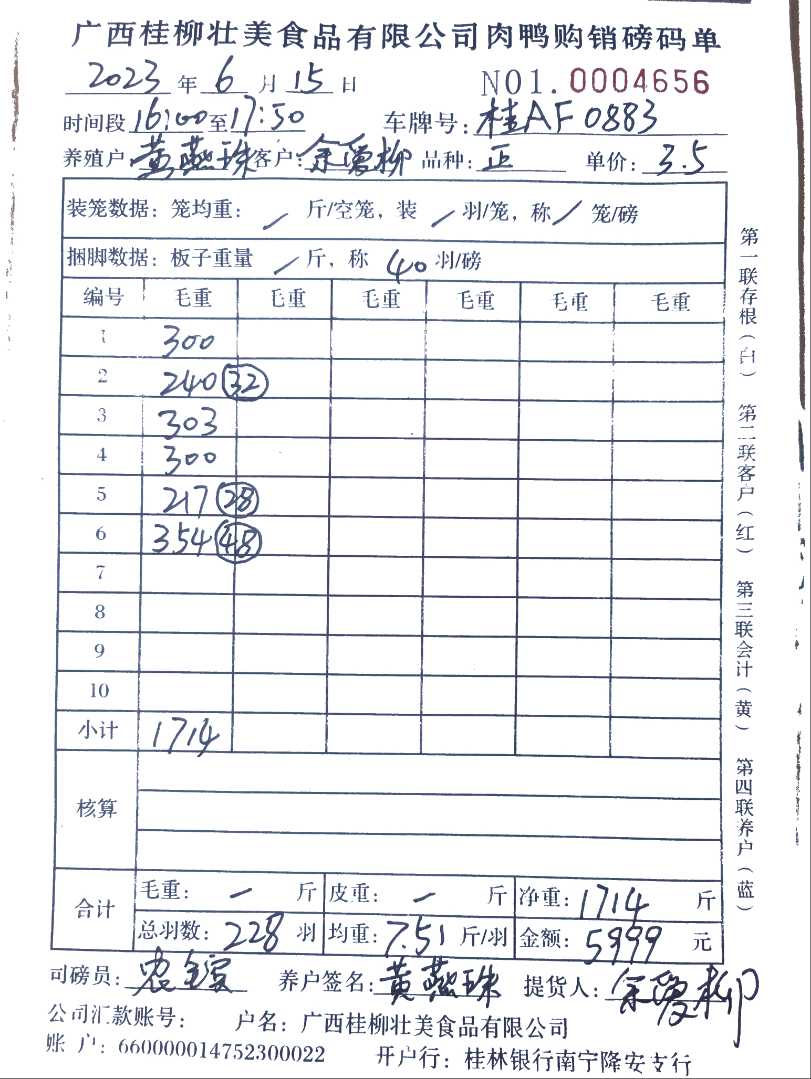 广西桂柳壮美食品有限公司肉鸭购销磅码单
2023 年 6 月 15 日 NO1. 0004656
时间段 16:00 至 17:50 车牌号: 桂AF0883
养殖户: 黄燕珠 客户: 余爱柳 品种: 正 单价: 3.5
装笼数据: 笼均重: / 斤/空笼, 装 / 羽/笼, 称 / 笼/磅
捆脚数据: 板子重量 / 斤, 称 40 羽/磅
编号 毛重 毛重 毛重 毛重 毛重 毛重
1 300
2 240 32
3 303
4 300
5 217 28
6 354 48
7
8
9
10
小计 1714
核算
合计 毛重: — 斤 皮重: — 斤 净重: 1714 斤
总羽数: 228 羽 均重: 7.51 斤/羽 金额: 5999 元
司磅员: 养户签名: 黄燕珠 提货人: 余爱柳
公司汇款账号: 户名: 广西桂柳壮美食品有限公司
账 户: 660000014752300022 开户行: 桂林银行南宁隆安支行
第一联存根(白) 第二联客户(红) 第三联会计(黄) 第四联养户(蓝)